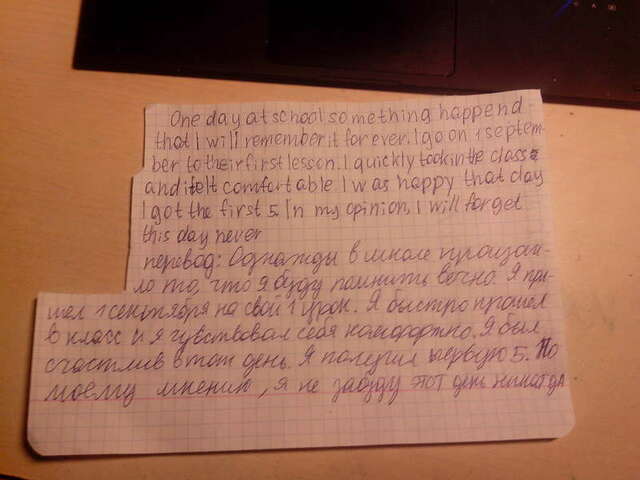 One day at school something happend
that I will remember it for ever. I go on 1 septem-
ber to their first lesson. I quickly took in the class
and it felt comfortable I was happy that day
I got the first 5. In my opinion, I will forget
this day never
перевод: Однажды в школе произош-
ло то, что я буду помнить вечно. Я при-
шел 1 сентября на свой 1 урок. Я быстро прошел
в класс и я чувствовал себя комфортно. Я был
счастлив в тот день. Я получил первую 5. По
моему мнению, я не забуду этот день никогда